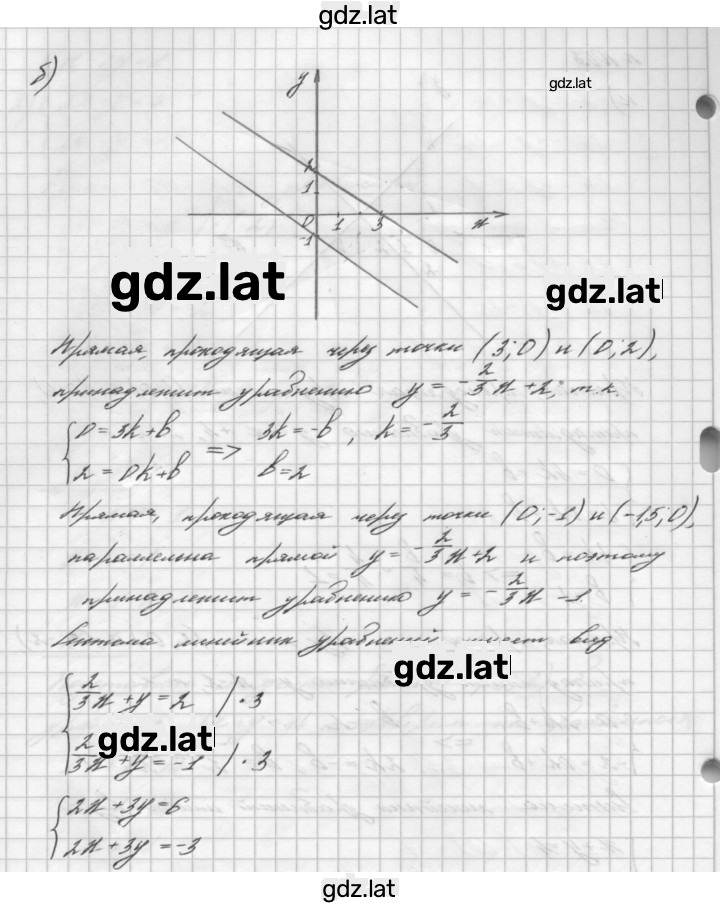 gdz.lat
б)
y
gdz.lat
2
1
0 1 3 x
-1
gdz.lat
gdz.lat
Прямая, проходящая через точки (3; 0) и (0; 2),
принадлежит уравнению y = -2/3 x + 2, т.к.
{ 0 = 3k + b => 3k = -b, k = -2/3
{ 2 = 0k + b b = 2
Прямая, проходящая через точки (0; -1) и (-1,5; 0),
параллельна прямой y = -2/3 x + 2 и поэтому
принадлежит уравнению y = -2/3 x - 1.
Система линейных уравнений имеет вид
gdz.lat
{ 2/3 x + y = 2 / · 3
gdz.lat
{ 2/3 x + y = -1 / · 3
{ 2x + 3y = 6
{ 2x + 3y = -3
gdz.lat